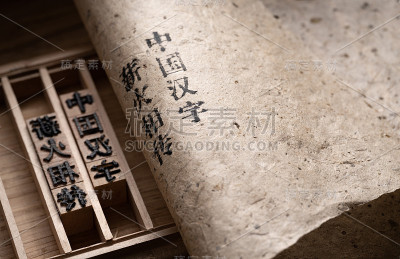 中国汉字
薪火相传
中国汉字
薪火相传
稿定素材
SUCAI.GAODING.COM